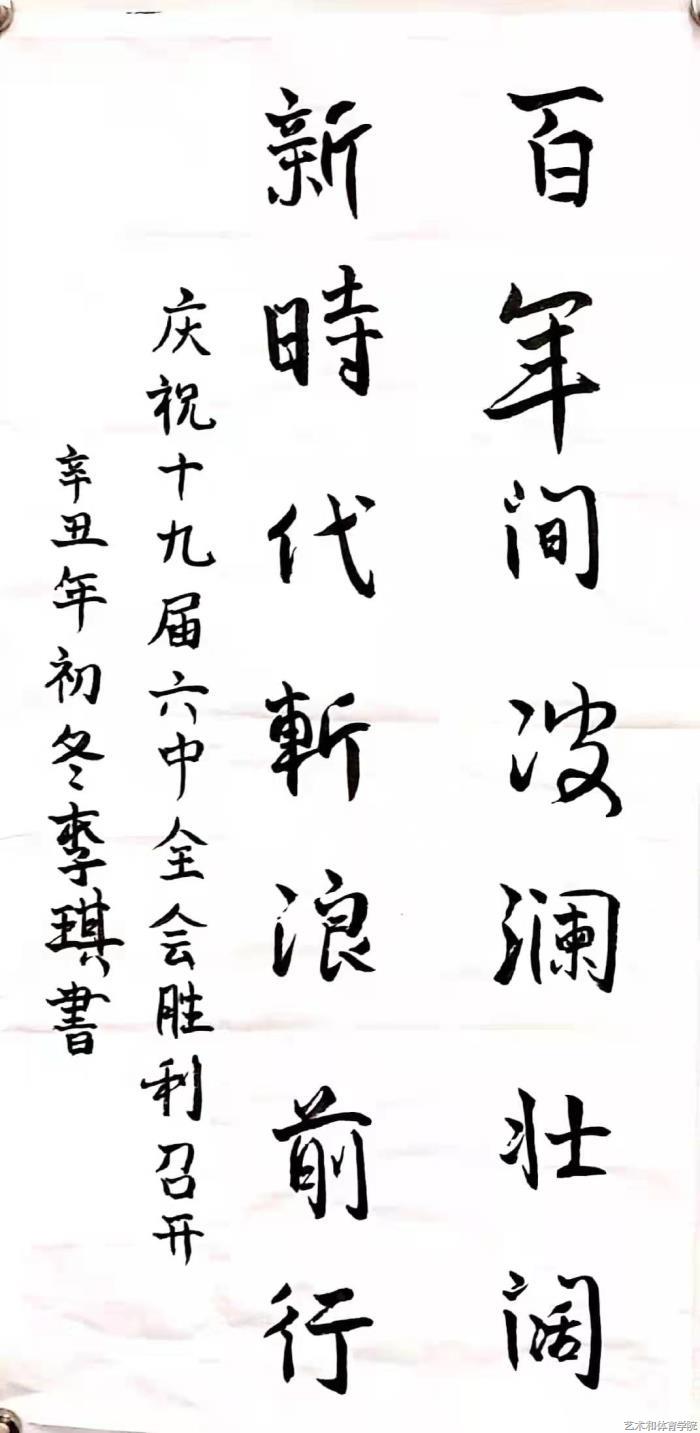 百年间波澜壮阔
新時代斬浪前行
庆祝十九届六中全会胜利召开
辛丑年初冬李琪書
艺术和体育学院